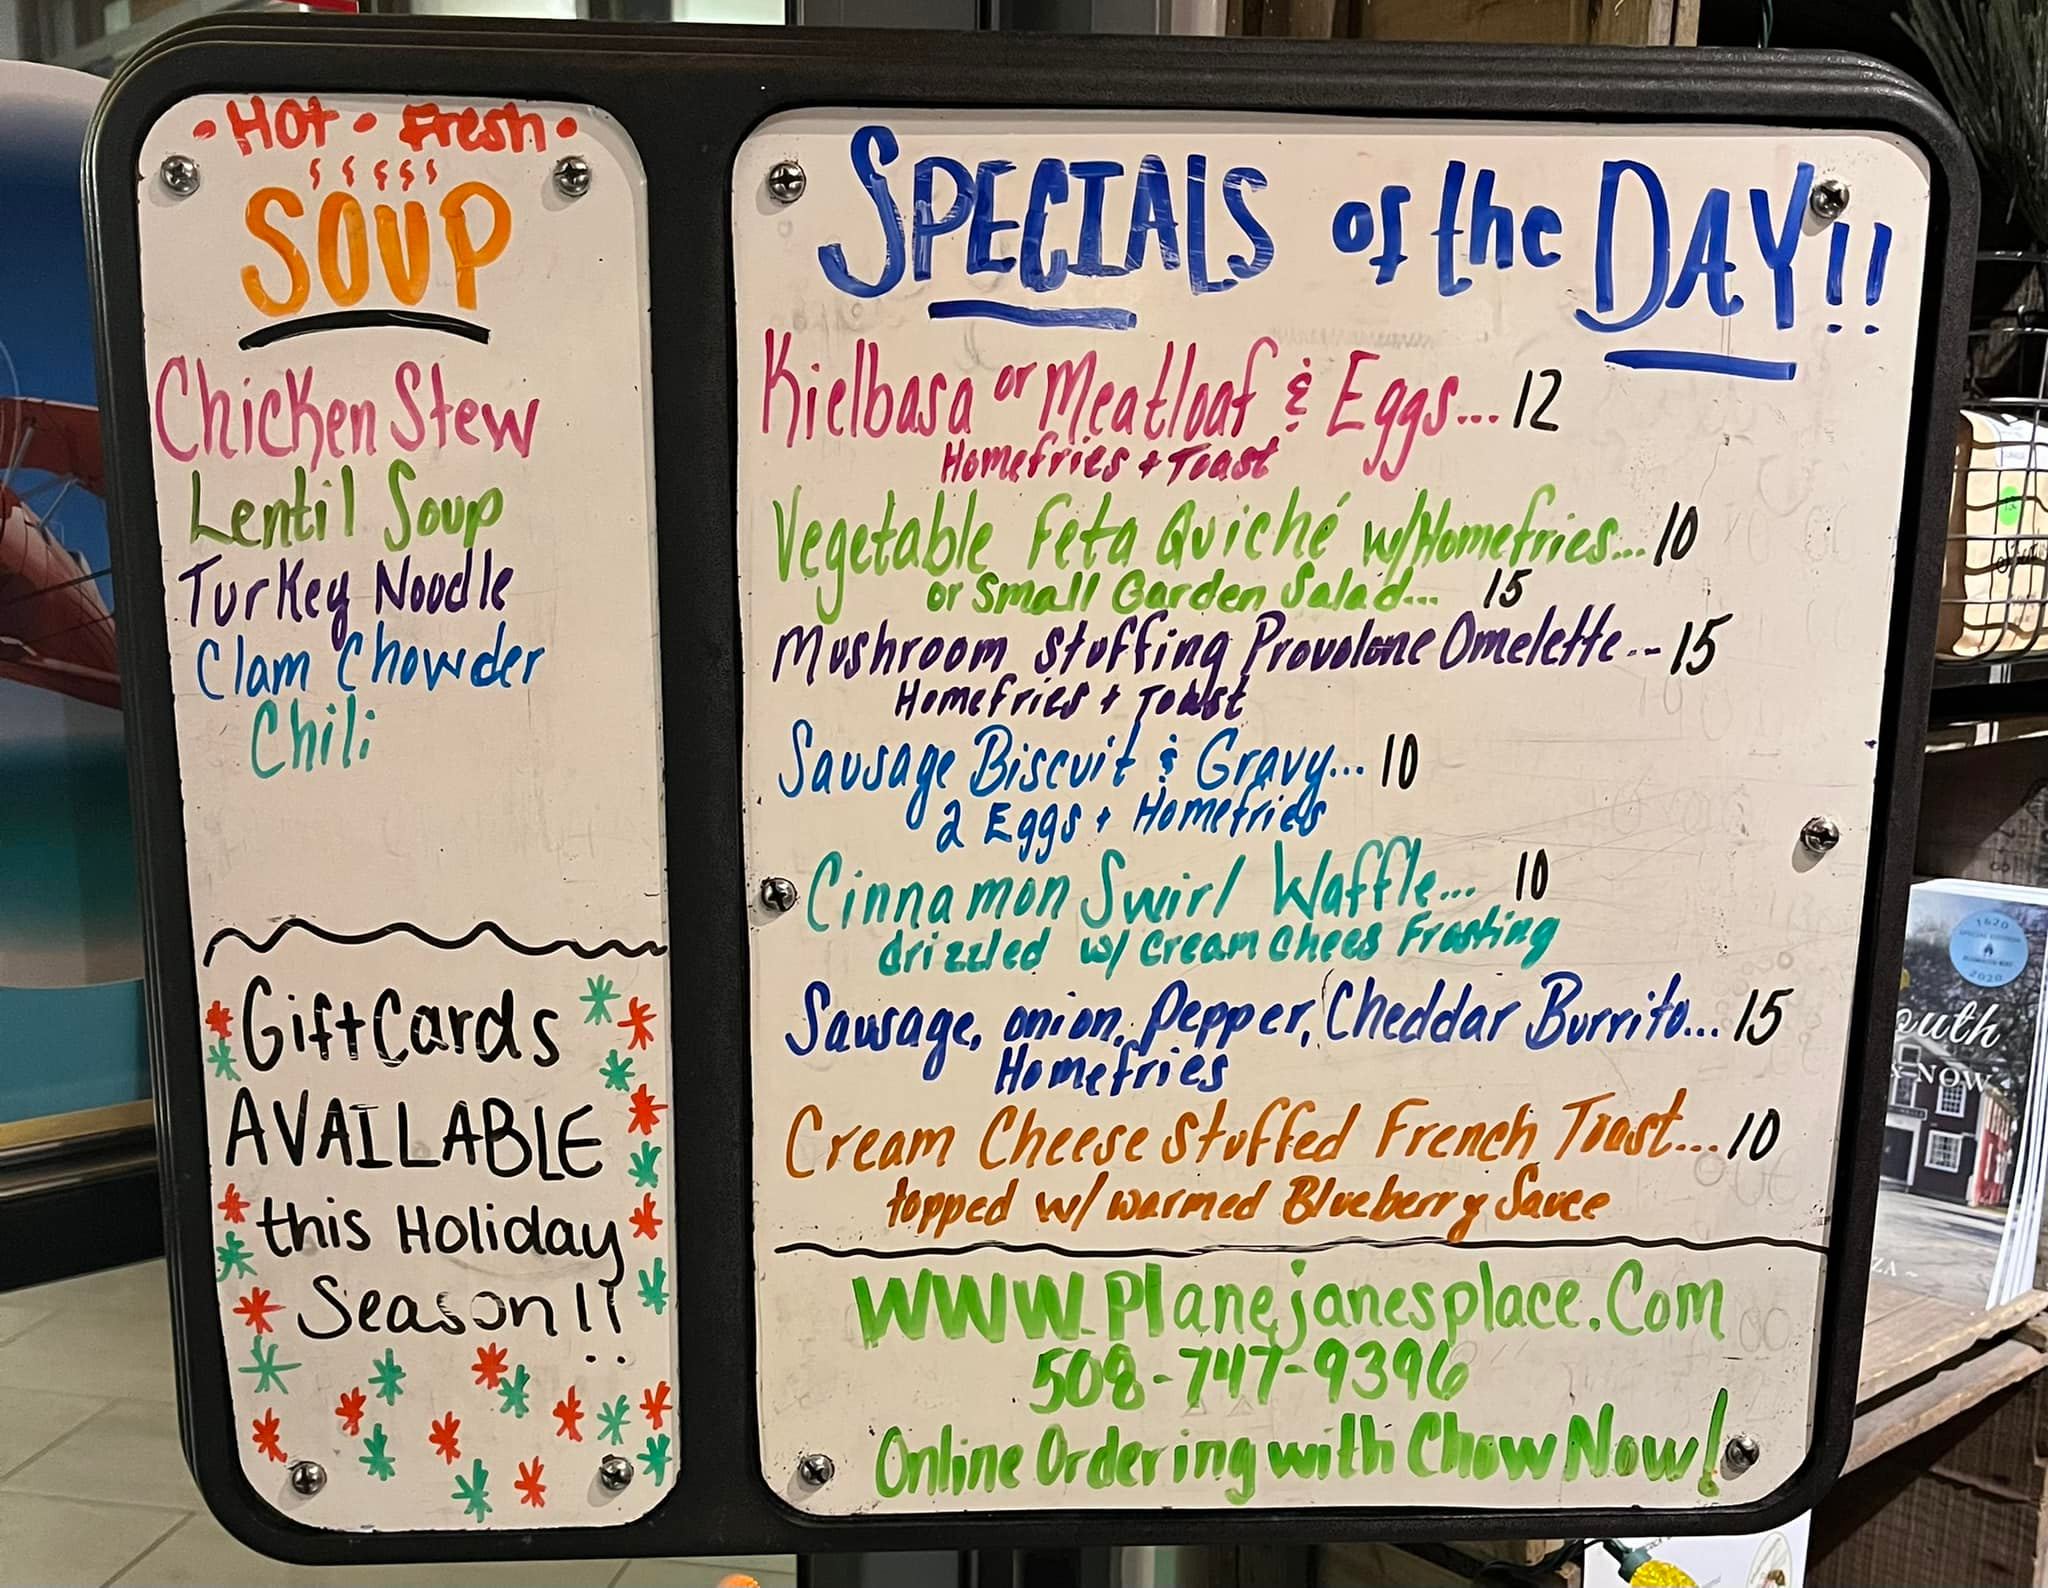 • Hot • Fresh •
SOUP
Chicken Stew
Lentil Soup
Turkey Noodle
Clam Chowder
Chili
Gift Cards
AVAILABLE
this Holiday
Season!!
SPECIALS of the DAY!!
Kielbasa or Meatloaf & Eggs... 12
Homefries + Toast
Vegetable Feta Quiché w/Homefries... 10
or Small Garden Salad... 15
Mushroom Stuffing Provolone Omelette... 15
Homefries + Toast
Sausage Biscuit & Gravy... 10
2 Eggs + Homefries
Cinnamon Swirl Waffle... 10
drizzled w/ Cream Chees Frosting
Sausage, onion, Pepper, Cheddar Burrito... 15
Homefries
Cream Cheese Stuffed French Toast... 10
topped w/ warmed Blueberry Sauce
WWW.Planejanesplace.Com
508-747-9396
Online Ordering with Chow Now!
1620
2020
NOW